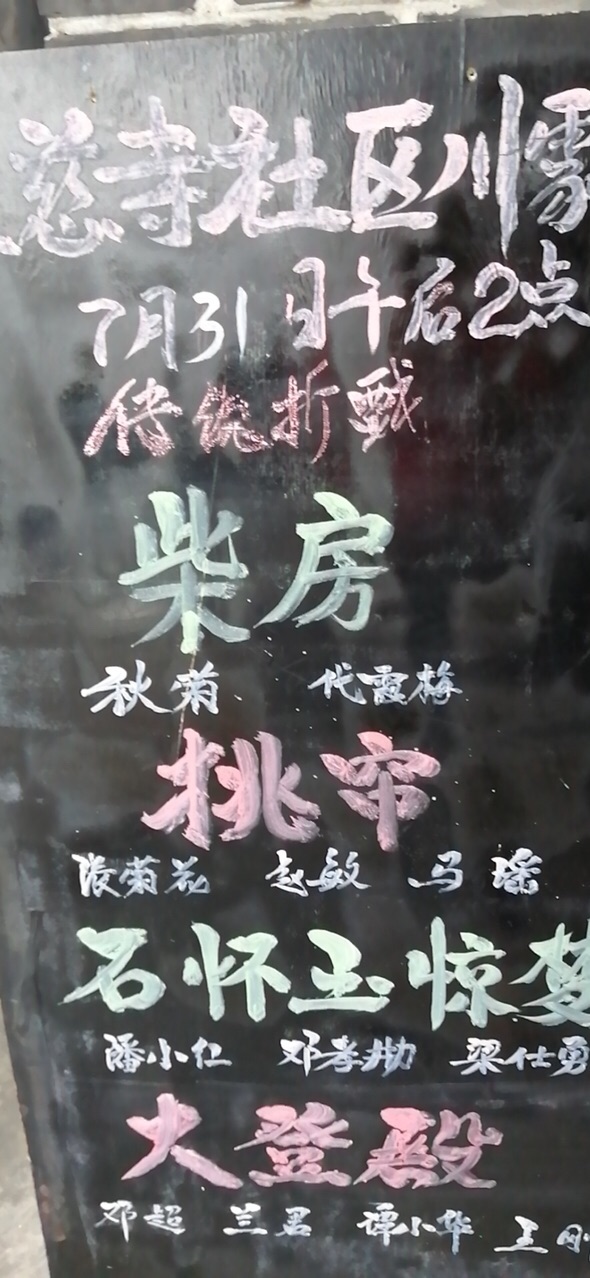 慈寺社区川
7月31日午后2点
传统折戲
柴房
秋菊 代霞梅
挑帘
张菊花 赵敏 马瑶
石怀玉惊梦
潘小仁 邓孝 梁仕勇
大登殿
邓超 兰君 谭小华 王刚